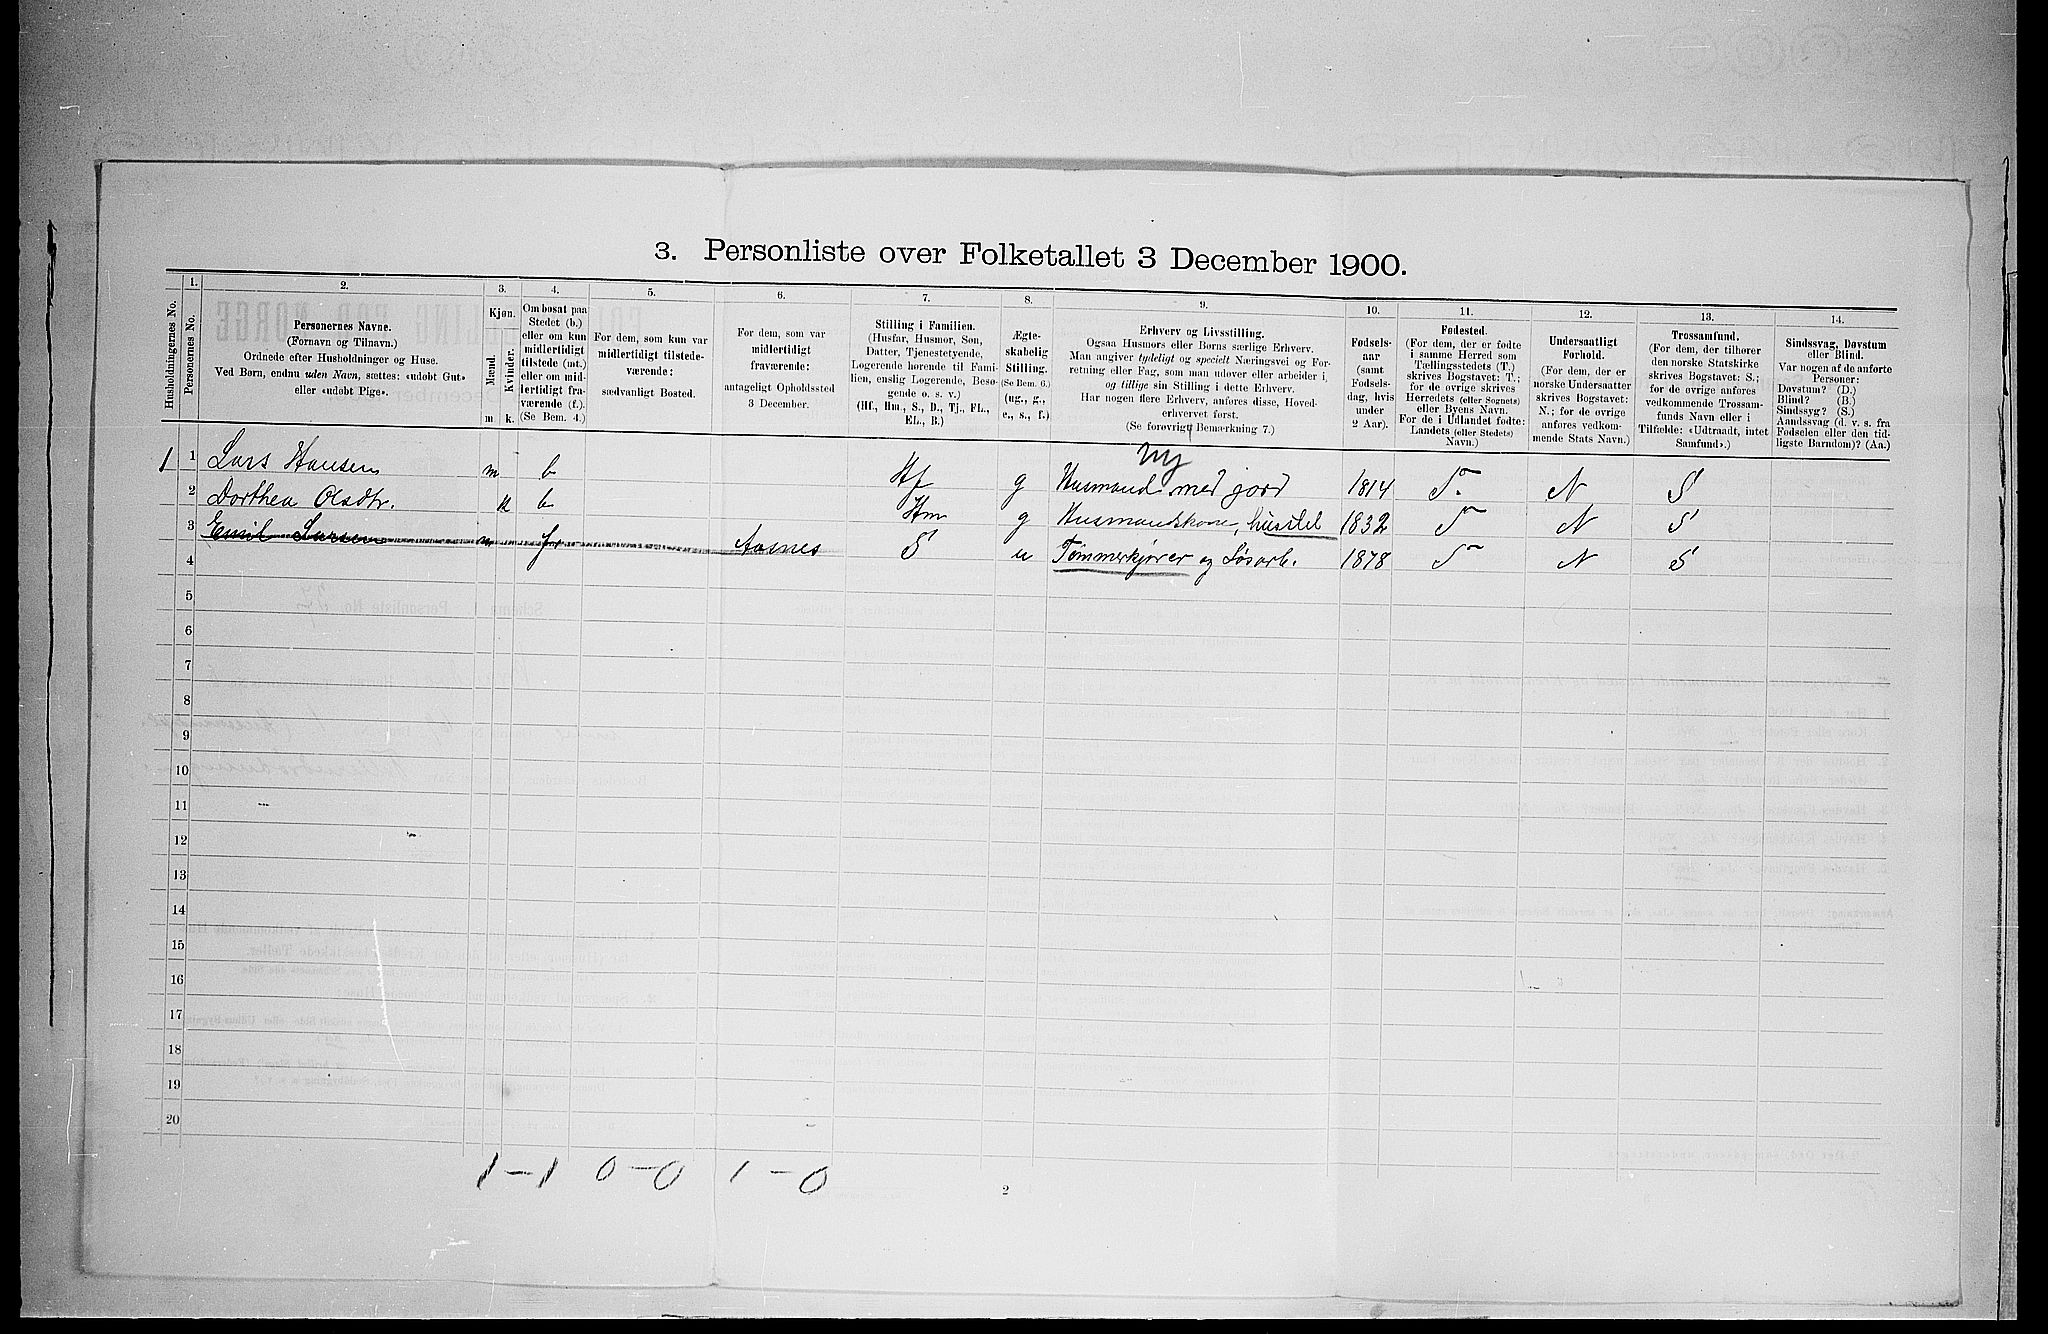 3. Personliste over Folketallet 3 December 1900.
Husholdningernes No.
1.
Personernes No.
2.
Personernes Navne.
(Fornavn og Tilnavn.)
Ordnede efter Husholdninger og Huse.
Ved Børn, endnu uden Navn, sættes: «udøbt Gut»
eller «udøbt Pige».
3.
Kjøn.
Mænd.
Kvinder.
m k.
4.
Om bosat paa
Stedet (b.)
eller om kun
midlertidigt
tilstede (mt.)
eller om mid-
lertidigt fra-
værende (f.)
(Se Bem. 4.)
5.
For dem, som kun var
midlertidigt tilstede-
værende:
sædvanligt Bosted.
6.
For dem, som var
midlertidigt
fraværende:
antageligt Opholdssted
3 December.
7.
Stilling i Familien.
(Husfar, Husmor, Søn,
Datter, Tjenestetyende,
Logerende hørende til Fami-
lien, enslig Logerende, Besø-
gende o. s. v.)
(Hf., Hm., S., D., Tj., FL.,
EL., B.)
8.
Ægte-
skabelig
Stilling.
(Se Bem. 6.)
(ug., g.,
e., s., f.)
9.
Erhverv og Livsstilling.
Ogsaa Husmors eller Børns særlige Erhverv.
Man angiver tydeligt og specielt Næringsvei og For-
retning eller Fag, som man udøver eller arbeider i,
og tillige sin Stilling i dette Erhverv.
Har nogen flere Erhverv, anføres disse, Hoved-
erhvervet først.
(Se forøvrigt Bemærkning 7.)
10.
Fødsels-
aar
(samt
Fødsels-
dag, hvis
under
2 Aar).
11.
Fødested.
(For dem, der er fødte
i samme Herred som
Tællingsstedets (T.)
skrives Bogstavet: T.;
for de øvrige skrives
Herredets (eller Sognets)
eller Byens Navn.
For de i Udlandet fødte:
Landets (eller Stedets)
Navn.)
12.
Undersaatligt
Forhold.
(For dem, der er
norske Undersaatter
skrives Bogstavet:
N.; for de øvrige
anføres vedkom-
mende Stats Navn.)
13.
Trossamfund.
(For dem, der tilhører
den norske Statskirke
skrives Bogstavet: S.;
for de øvrige anføres
vedkommende Trossam-
funds Navn eller i
Tilfælde: «Udtraadt, intet
Samfund».)
14.
Sindssvag, Døvstum
eller Blind.
Var nogen af de anførte
Personer:
Døvstum? (D.)
Blind? (B.)
Sindssyg? (S.)
Aandssvag (d. v. s. fra
Fødselen eller den tid-
ligste Barndom)? (Aa.)
ny
1 1 Lars Hansen m b Hf g Husmand med jord 1814 T. N S
2 Dorthea Olsdtr. k b Hm g Husmandskone, husstel 1832 T N S
3 Emil Larsen m f Aasnes S u Tømmerkjører og Løsarb. 1878 T N S
4
5
6
7
8
9
10
11
12
13
14
15
16
17
18
19
20
1–1 0–0 1–0
2